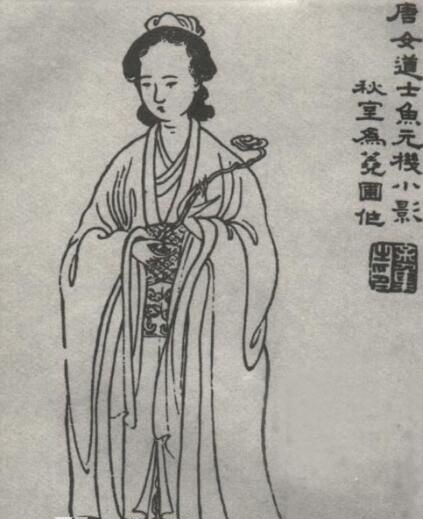 唐女道士魚元機小影
秋室為蕘圃作